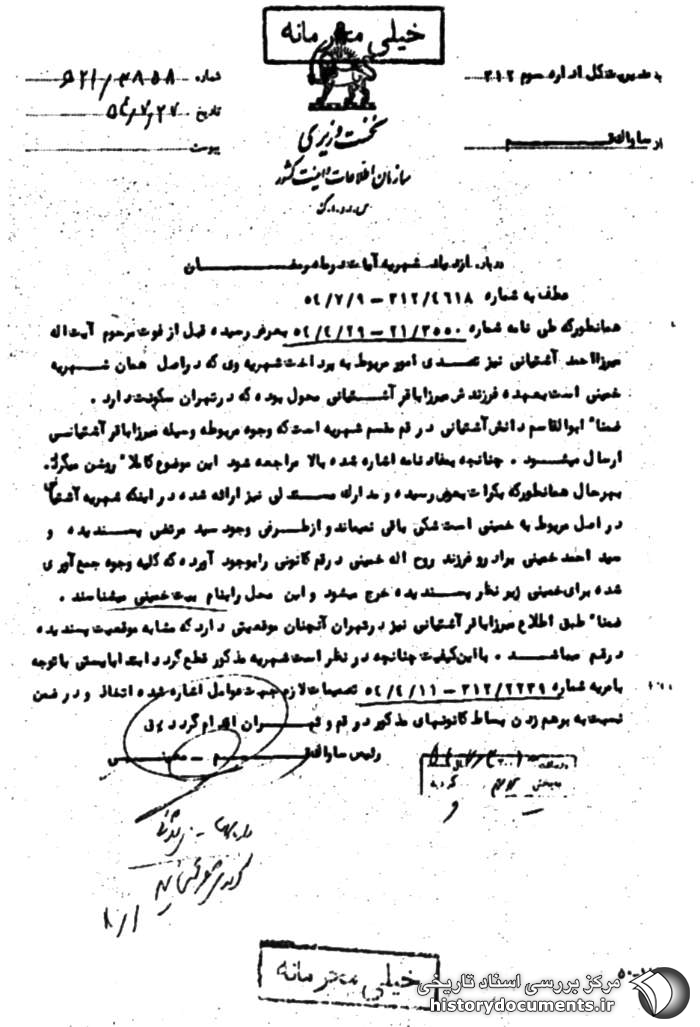 خیلی محرمانه
به مدیریت کل اداره سوم ۳۱۲
از ساواک قم
شماره ۲۱/۳۸۵۸
تاریخ ۵۴/۷/۲۷
پیوست
نخست وزیری
سازمان اطلاعات و امنیت کشور
س.ا.و.ا.ک
درباره ازدیاد شهریه آیات در ماه رمضان
عطف به شماره ۳۱۲/۴۶۱۸ - ۵۴/۷/۹
همانطورکه طی نامه شماره ۲۱/۳۵۵۰ - ۵۴/۴/۲۹ بعرض رسیده قبل از فوت مرحوم آیت اله
میرزا احمد آشتیانی نیز تصدی امور مربوط به پرداخت شهریه وی که دراصل همان شهریه
خمینی است بعهده فرزندش میرزا باقر آشتیانی محول بوده که درتهران سکونت دارد .
ضمنا" ابوالقاسم دانش آشتیانی در قم مقسم شهریه است که وجوه مربوطه وسیله میرزا باقر آشتیانی
ارسال میشود . چنانچه بمفاد نامه اشاره شده بالا مراجعه شود این موضوع کاملا" روشن میگردد.
بهرحال همانطورکه بکرات بعرض رسیده و مدارک مستدلی نیز ارائه شده در اینکه شهریه آشتیانی
در اصل مربوط به خمینی است شکی باقی نمیماند و ازطرفی وجود سید مرتضی پسندیده و
سید احمد خمینی برادر و فرزند روح اله خمینی درقم کانونی را بوجود آورده که کلیه وجوه جمع آوری
شده برای خمینی زیر نظر پسندیده خرج میشود و این محل را بنام بیت خمینی میشناسند .
ضمنا" طبق اطلاع میرزا باقر آشتیانی نیز درتهران آنچنان موقعیتی دارد که مشابه موقعیت پسندیده
درقم میباشد . با این کیفیت چنانچه در نظر است شهریه مذکور قطع گردد ابتدا بایستی با توجه
بامریه شماره ۳۱۲/۲۲۳۹ - ۵۴/۴/۱۱ تصمیمات لازم جهت عوامل اشاره شده اتخاذ و در ضمن
نسبت به برهم زدن بساط کانونهای مذکور در قم و تهران اقدام گردد
رئیس ساواک قم - معینی
خیلی محرمانه
مرکز بررسی اسناد تاریخی
historydocuments.ir